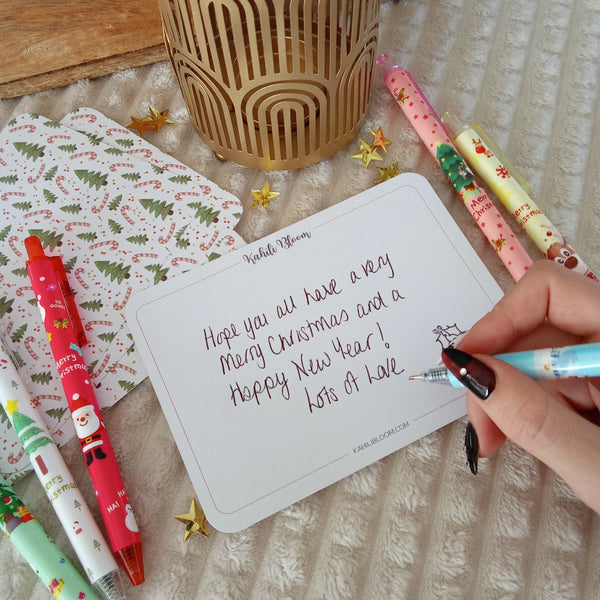 Kahili Bloom
Hope you all have a very
Merry Christmas and a
Happy New Year!
Lots of Love
KAHILIBLOOM.COM
Merry Christmas
Merry
Christmas
Merry Christmas
HA!
HA!